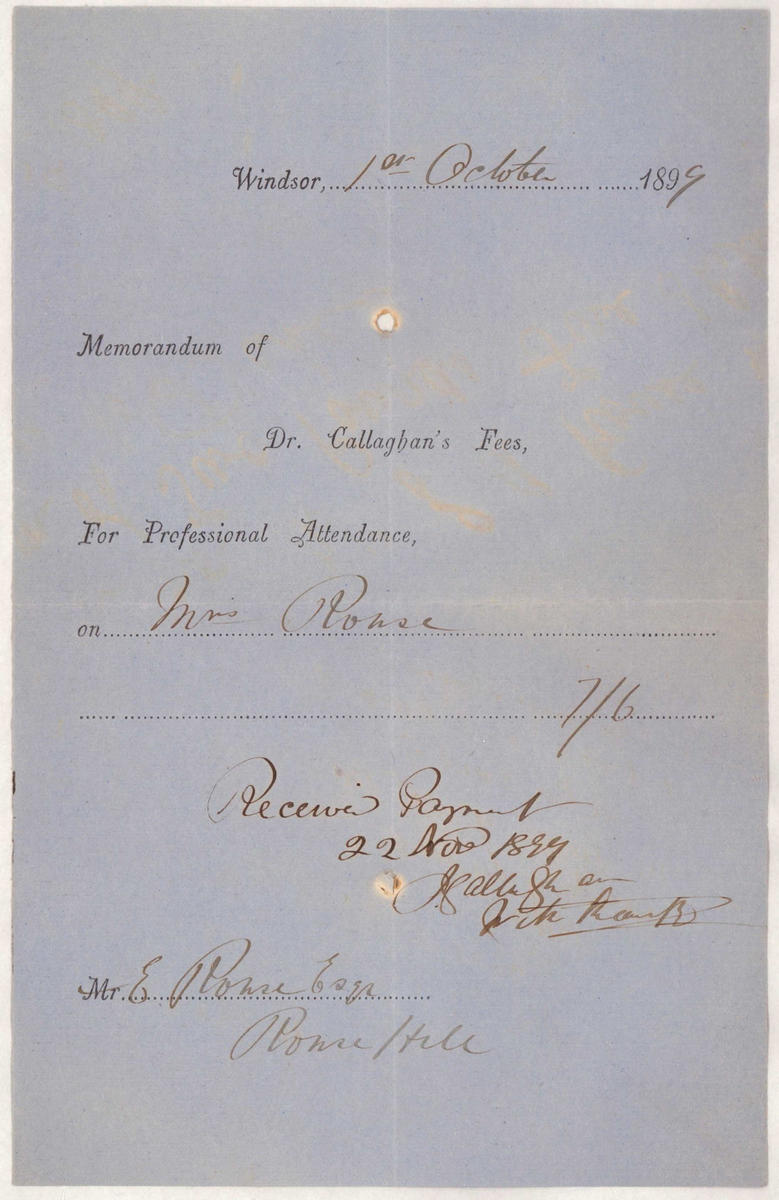 Windsor, 1st October 1899
Memorandum of
Dr. Callaghan's Fees,
For Professional Attendance,
on Mrs Rouse
7/6
Received Payment
22 Nov 1899
J Callaghan
With thanks
Mr. E Rouse Esqr
Rouse Hill